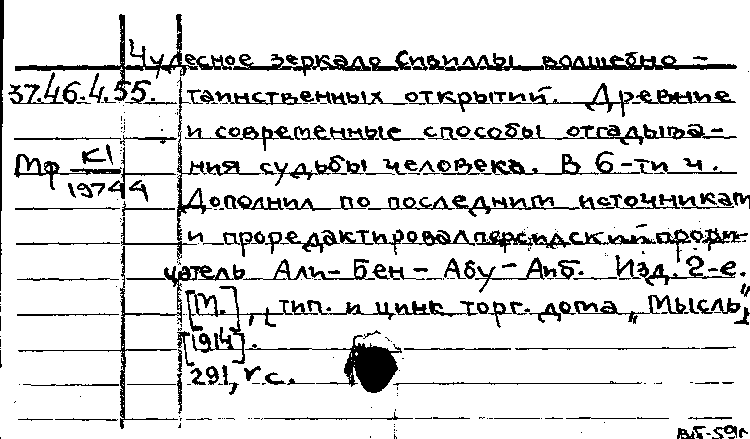 Чудесное зеркало Сивиллы волшебно-
37.46.4.55. таинственных открытий. Древние
и современные способы отгадыва-
Мф К1/19744 ния судьбы человека. В 6-ти ч.
Дополнил по последним источникам
и проредактировал персидский прори-
цатель Али-Бен-Абу-Аиб. Изд. 2-е.
[М.], тип. и цинк. торг. дома "Мысль",
[1914].
291, с.